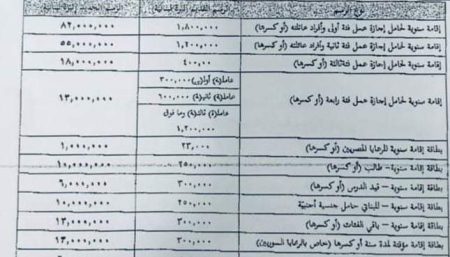 نوع الرسم
إقامة سنوية لحامل إجازة عمل فئة أولى وأفراد عائلته (أو كسرها) ١,٨٠٠,٠٠٠ ٨٢,٠٠٠,٠٠٠
إقامة سنوية لحامل إجازة عمل فئة ثانية وأفراد عائلته (أو كسرها) ١,٢٠٠,٠٠٠ ٥٥,٠٠٠,٠٠٠
إقامة سنوية لحامل إجازة عمل فئة ثالثة (أو كسرها) ٤٠٠,٠٠ ١٨,٠٠٠,٠٠٠
إقامة سنوية لحامل إجازة عمل فئة رابعة (أو كسرها) ١٣,٠٠٠,٠٠٠
عاملة(ة) أول(ى) ٣٠٠,٠٠٠
عاملة(ة) ثاني(ة) ٦٠٠,٠٠٠
عاملة(ة) ثالث(ة) وما فوق
١,٢٠٠,٠٠٠
بطاقة إقامة سنوية للرعايا المصريين (أو كسرها) ٢٣,٠٠٠ ١,٠٠٠,٠٠٠
بطاقة إقامة سنوية – طالب (أو كسرها) ٢٥٠,٠٠٠ ١٠,٠٠٠,٠٠٠
بطاقة إقامة سنوية – قيد الدرس (أو كسرها) ٣٠٠,٠٠٠ ٦,٠٠٠,٠٠٠
بطاقة إقامة سنوية – للبناني حامل جنسية أجنبية ٢٥٠,٠٠٠ ١٠,٠٠٠,٠٠٠
بطاقة إقامة سنوية – باقي الفئات (أو كسرها) ٣٠٠,٠٠٠ ١٣,٠٠٠,٠٠٠
بطاقة إقامة مؤقتة لمدة سنة أو كسرها (خاص بالرعايا السوريين) ٣٠٠,٠٠٠ ١٣,٠٠٠,٠٠٠